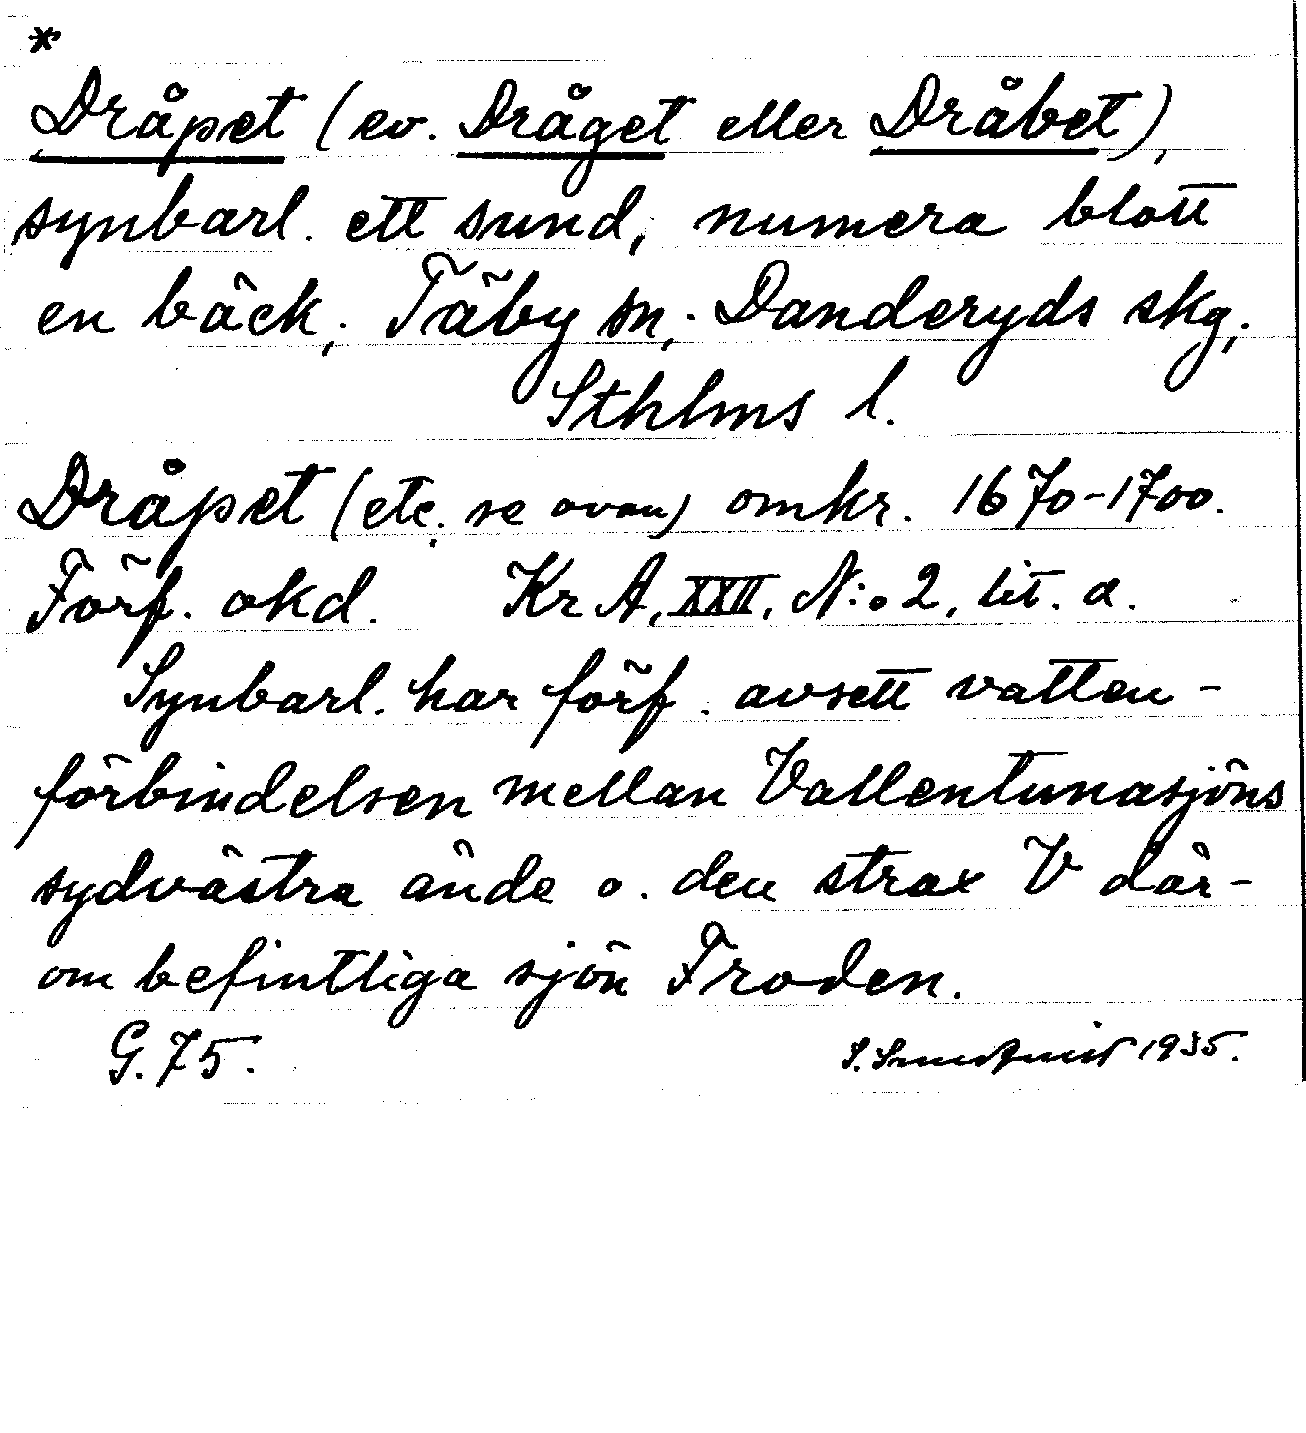 *
Dråpet (ev. Dråget eller Dråbet),
synbarl. ett sund, numera blott
en bäck, Täby sn, Danderyds skg,
Sthlms l.
Dråpet (etc. se ovan) omkr. 1670-1700.
Förf. okd. KrA, XXII, N:o 2, lit. a.
Synbarl. har förf. avsett vatten-
förbindelsen mellan Vallentunasjöns
sydvästra ände o. den strax V där-
om befintliga sjön Froden.
G. 75.
S. 1935.